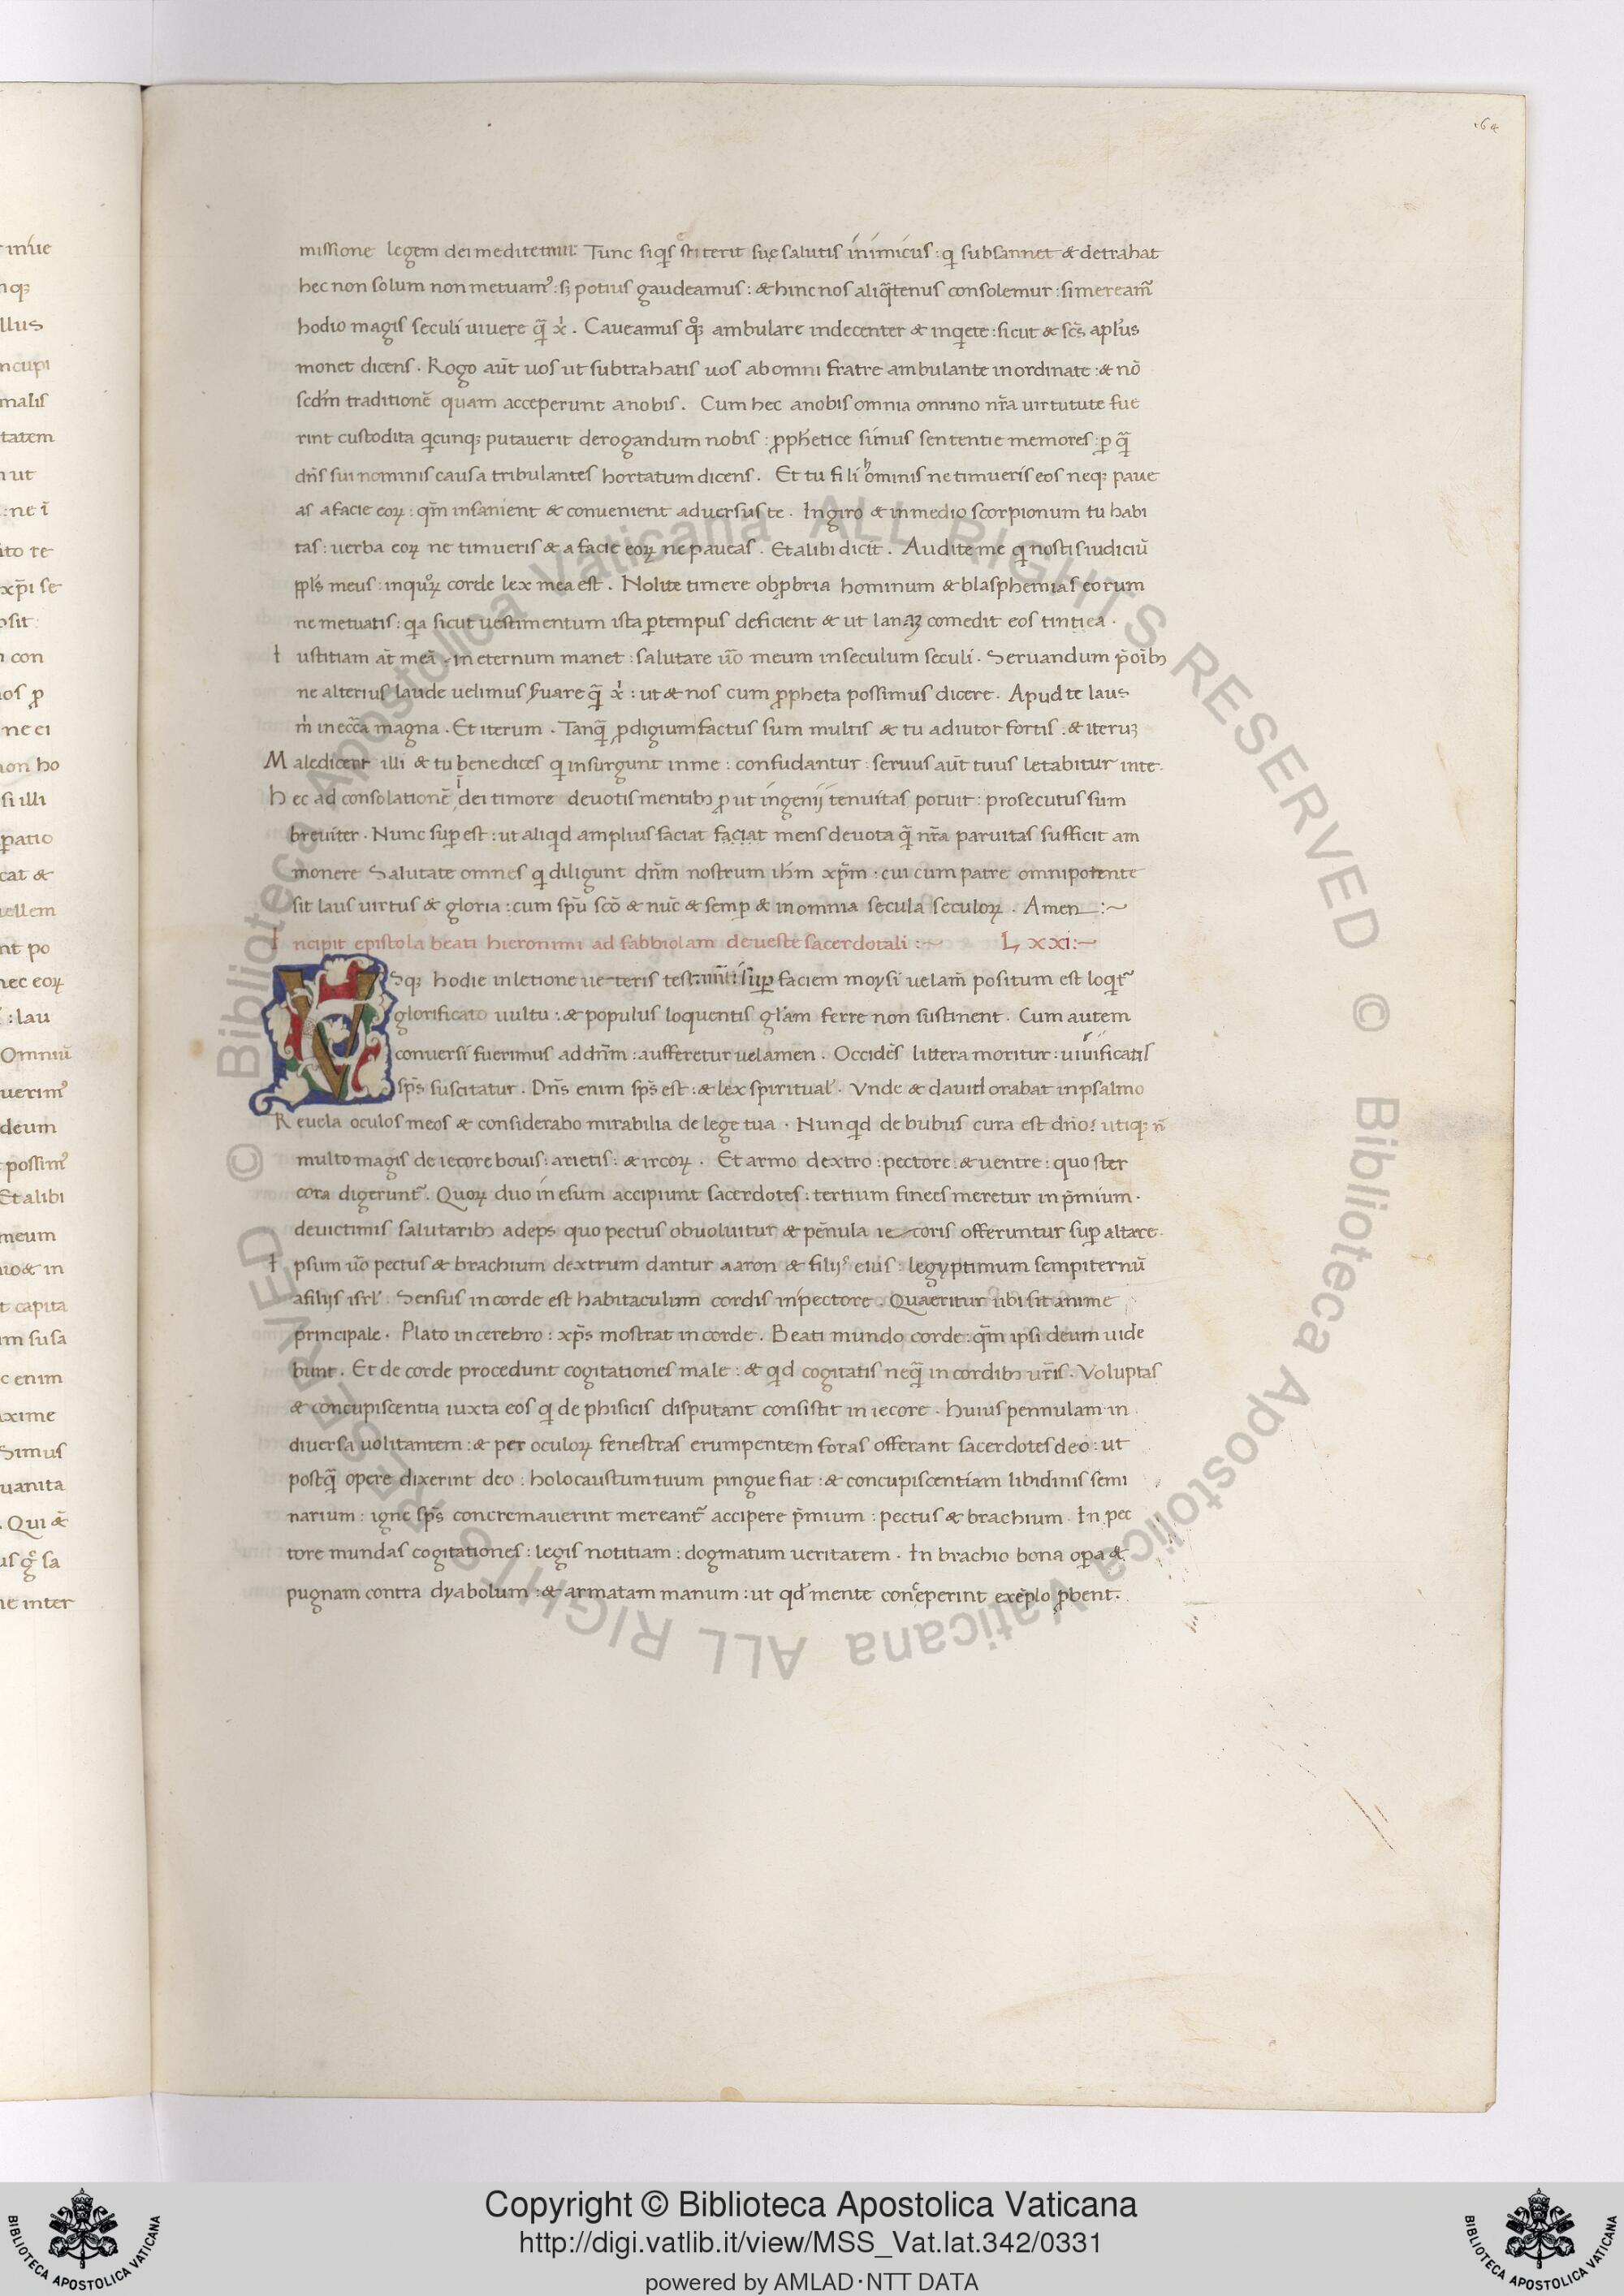 164
missione legem dei meditemur. Tunc siq̄s extiterit suę salutis inimicus : q̄ subsannet & detrahat
hec non solum non metuam⁹ : sꝫ potius gaudeamus : & hinc nos aliq̄tenus consolemur : si meream̄
hodio magis seculi uiuere q̄̃ x̄. Caveamus q̊ꝫ ambulare indecenter & inq̄ete : sicut & sc̄s apl̄us
monet dicens . Rogo aūt uos ut subtrahatis uos ab omni fratre ambulante inordinate : & nō
scd̄m traditionē quam acceperunt a nobis . Cum hec a nobis omnia omnino nr̄a uirtutute fue
rint custodita q̄cunqꝫ putauerit derogandum nobis : ꝓphetice simus sententie memores : ꝑ q̄̃
dn̄s sui nominis causa tribulantes hortatum dicens . Et tu fili hominis ne timueris eos neqꝫ paue
as a facie eoꝝ : qm̄ insanient & convenient adversus te . In giro & in medio scorpionum tu habi
tas : uerba eoꝝ ne timueris & a facie eoꝝ ne paveas . Et alibi dicit . Audite me q̄ nostis iudiciū
ppl̄s meus : in quoꝝ corde lex mea est . Nolite timere obꝓbria hominum & blasphemias eorum
ne metuatis : q̄a sicut uestimentum ista ꝑ tempus deficient & ut lanaꝫ comedit eos tintiea .
Iustitiam at̄ meā in eternum manet : salutare uō meum in seculum seculi . Servandum p̄ oībꝫ
ne alterius laude uelimus fruare q̄̃ x̄ : ut & nos cum ꝓpheta possimus dicere . Apud te laus
m̄ in ecc̄a magna . Et iterum . Tanq̄̃ ꝓdigium factus sum multis & tu adiutor fortis : & iteruꝫ
Maledicent illi & tu benedices q̄ insurgunt in me : confudantur : servus aūt tuus letabitur in te .
Hec ad consolationē i dei timore devotis mentibꝫ ꝓut ingenij tenuitas potuit : prosecutus sum
breviter . Nunc suꝑest : ut aliq̄d amplius faciat faciat mens devota q̄̃ nr̄a paruitas sufficit am
monere Salutate omnes q̄ diligunt dn̄m nostrum ih̄m xp̄m . cui cum patre omnipotente
sit laus virtus & gloria : cum spū scō & nūc & semꝑ & in omnia secula seculoꝝ . Amen :~
Incipit epistola beati hieronimi ad fabbiolam de veste sacerdotali :~ LXXI:~
Vsqꝫ hodie in letione ue-teris testam̄ti suꝑ faciem moysi uelam̄ positum est loq̄t᷑
glorificato uultu : & populus loquentis gl̄am ferre non sustinent . Cum autem
conversi fuerimus ad dn̄m : aufferetur uelamen . Occidēs littera moritur : uiuificatis
sp̄s suscitatur . Dn̄s enim sp̄s est : & lex spiritual . Vnde & dauid orabat in psalmo
Revela oculos meos & considerabo mirabilia de lege tua . Nunq̄d de bubus cura est dn̄o? utiqꝫ n̄
multo magis de iecore bouis : arietis : & ircoꝝ . Et armo dextro : pectore : & uentre : quo ster
cora digerunt᷑ . Quoꝝ duo in esum accipiunt sacerdotes : tertium finees meretur in p̄mium .
de uictimis salutaribꝫ adeps quo pectus obuoluitur & pēnula ie-coris offeruntur suꝑ altare .
Ipsum uō pectus & brachium dextrum dantur aaron & filijs eius : legyptimum sempiternū
a filijs isrl . Sensus in corde est habitaculum cordis in pectore . Quaeritur ubi sit anime
principale . Plato in cerebro : xp̄s mostrat in corde . Beati mundo corde : qm̄ ipsi deum uide
bunt . Et de corde procedunt cogitationes male : & q̄d cogitatis neq̄̃ in cordibꝫ ur̄is . Voluptas
& concupiscentia iuxta eos q̄ de phisicis disputant consistit in iecore . Huius pennulam in
diversa uolitantem : & per oculoꝝ fenestras erumpentem foras offerant sacerdotes deo : ut
postq̄̃ opere dixerint deo : holocaustum tuum pingue fiat : & concupiscentiam libidinis semi
narium : igne sp̄s concremauerint mereant᷑ accipere p̄mium : pectus & brachium . In pec
tore mundas cogitationes : legis notitiam : dogmatum veritatem . In brachio bona oꝑa &
pugnam contra dyabolum : & armatam manum : ut qd̄ mente conceperint exēplo ꝓbent .
Copyright © Biblioteca Apostolica Vaticana
http://digi.vatlib.it/view/MSS_Vat.lat.342/0331
powered by AMLAD·NTT DATA